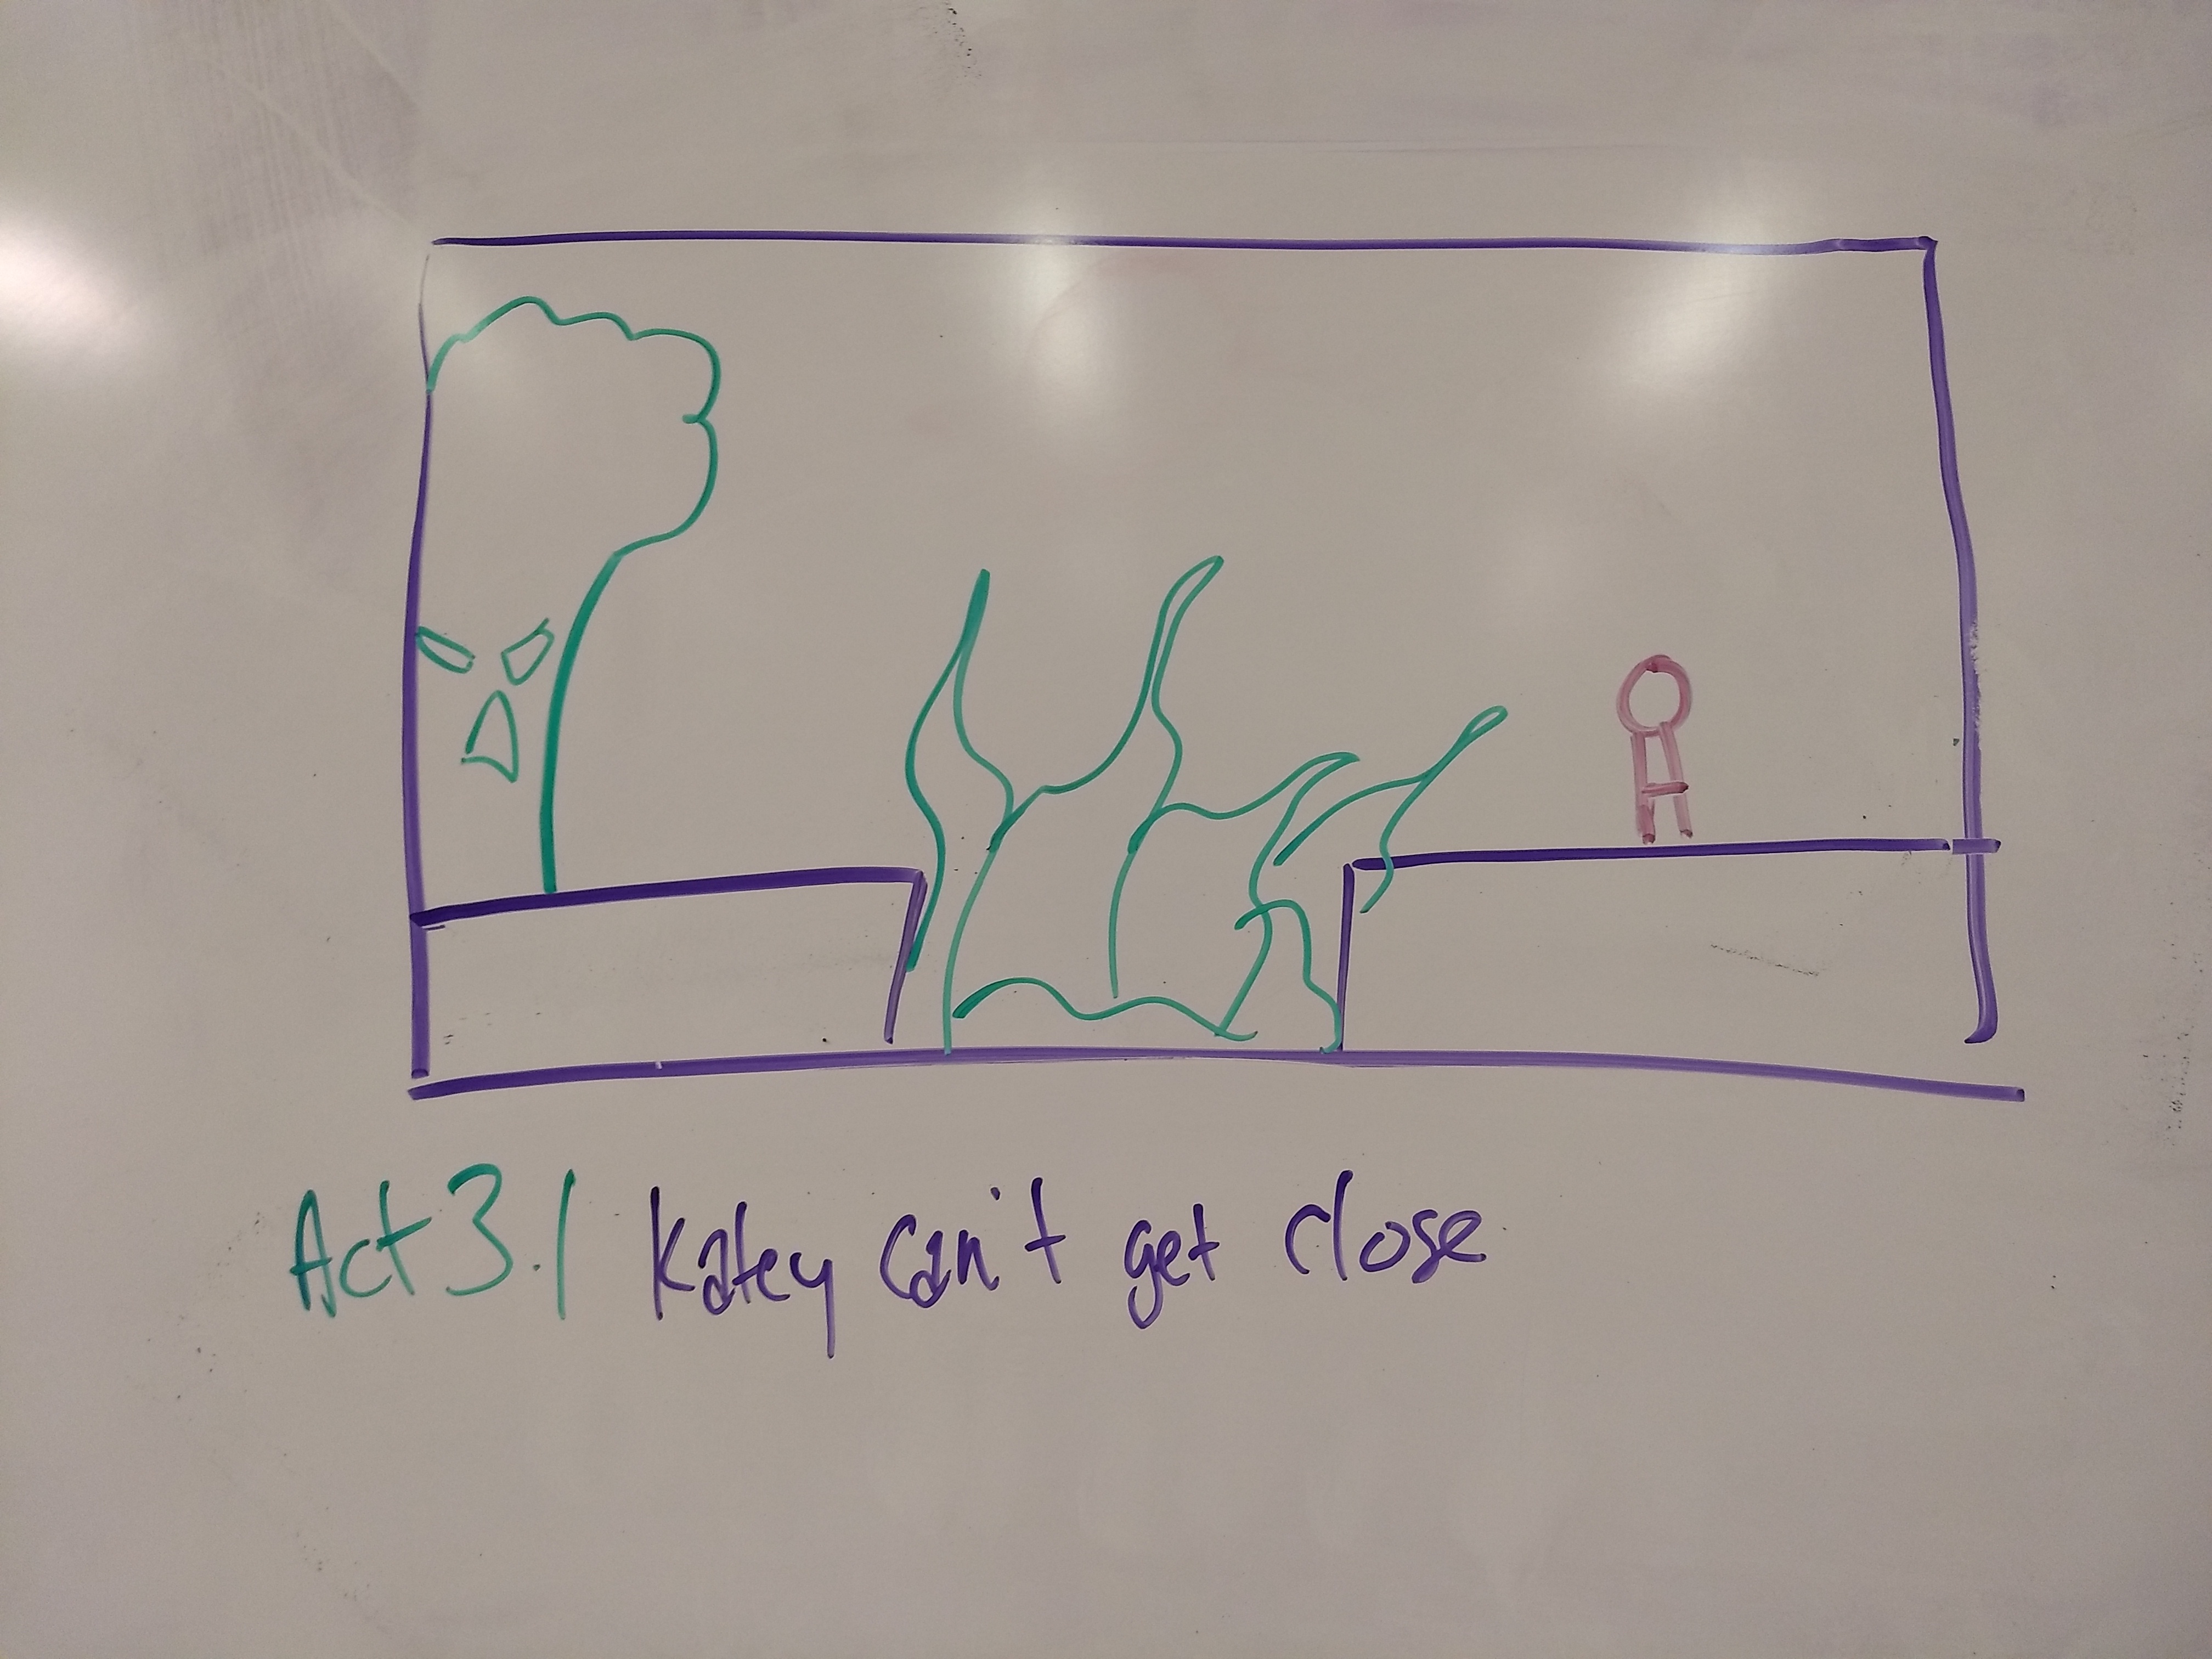 Act 3.1 Katey can't get close